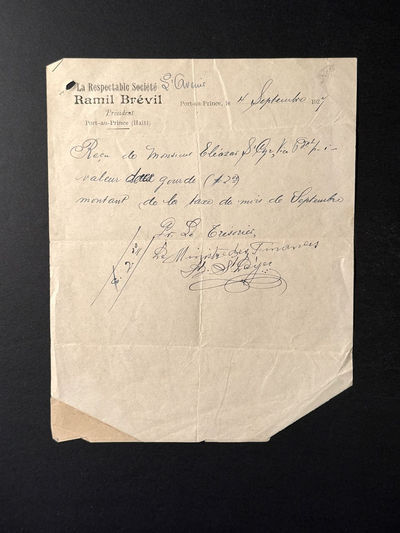 La Respectable Société L'Avenir
Ramil Brévil
Président
Port-au-Prince (Haiti)
Port-au-Prince, le 4 Septembre 1927
Reçu de Monsieur Eliézar
valeur gourde
montant de la taxe de mois de Septembre
Pr Le Tresorier
Le Ministre des Finances